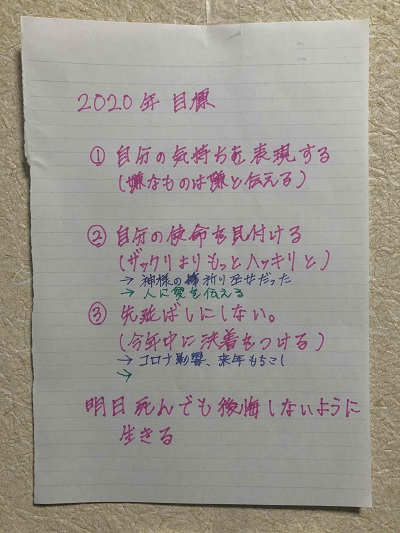 2020年 目標
① 自分の気持ちを表現する
(嫌なものは嫌と伝える)
② 自分の使命を見付ける
(ザックリよりもっとハッキリと)
→ 神様の祈り 幸せだった
→ 人に愛を伝える
③ 先延ばしにしない。
(今年中に決着をつける)
→ コロナ影響、来年もちこし
→
明日死んでも後悔しないように
生きる